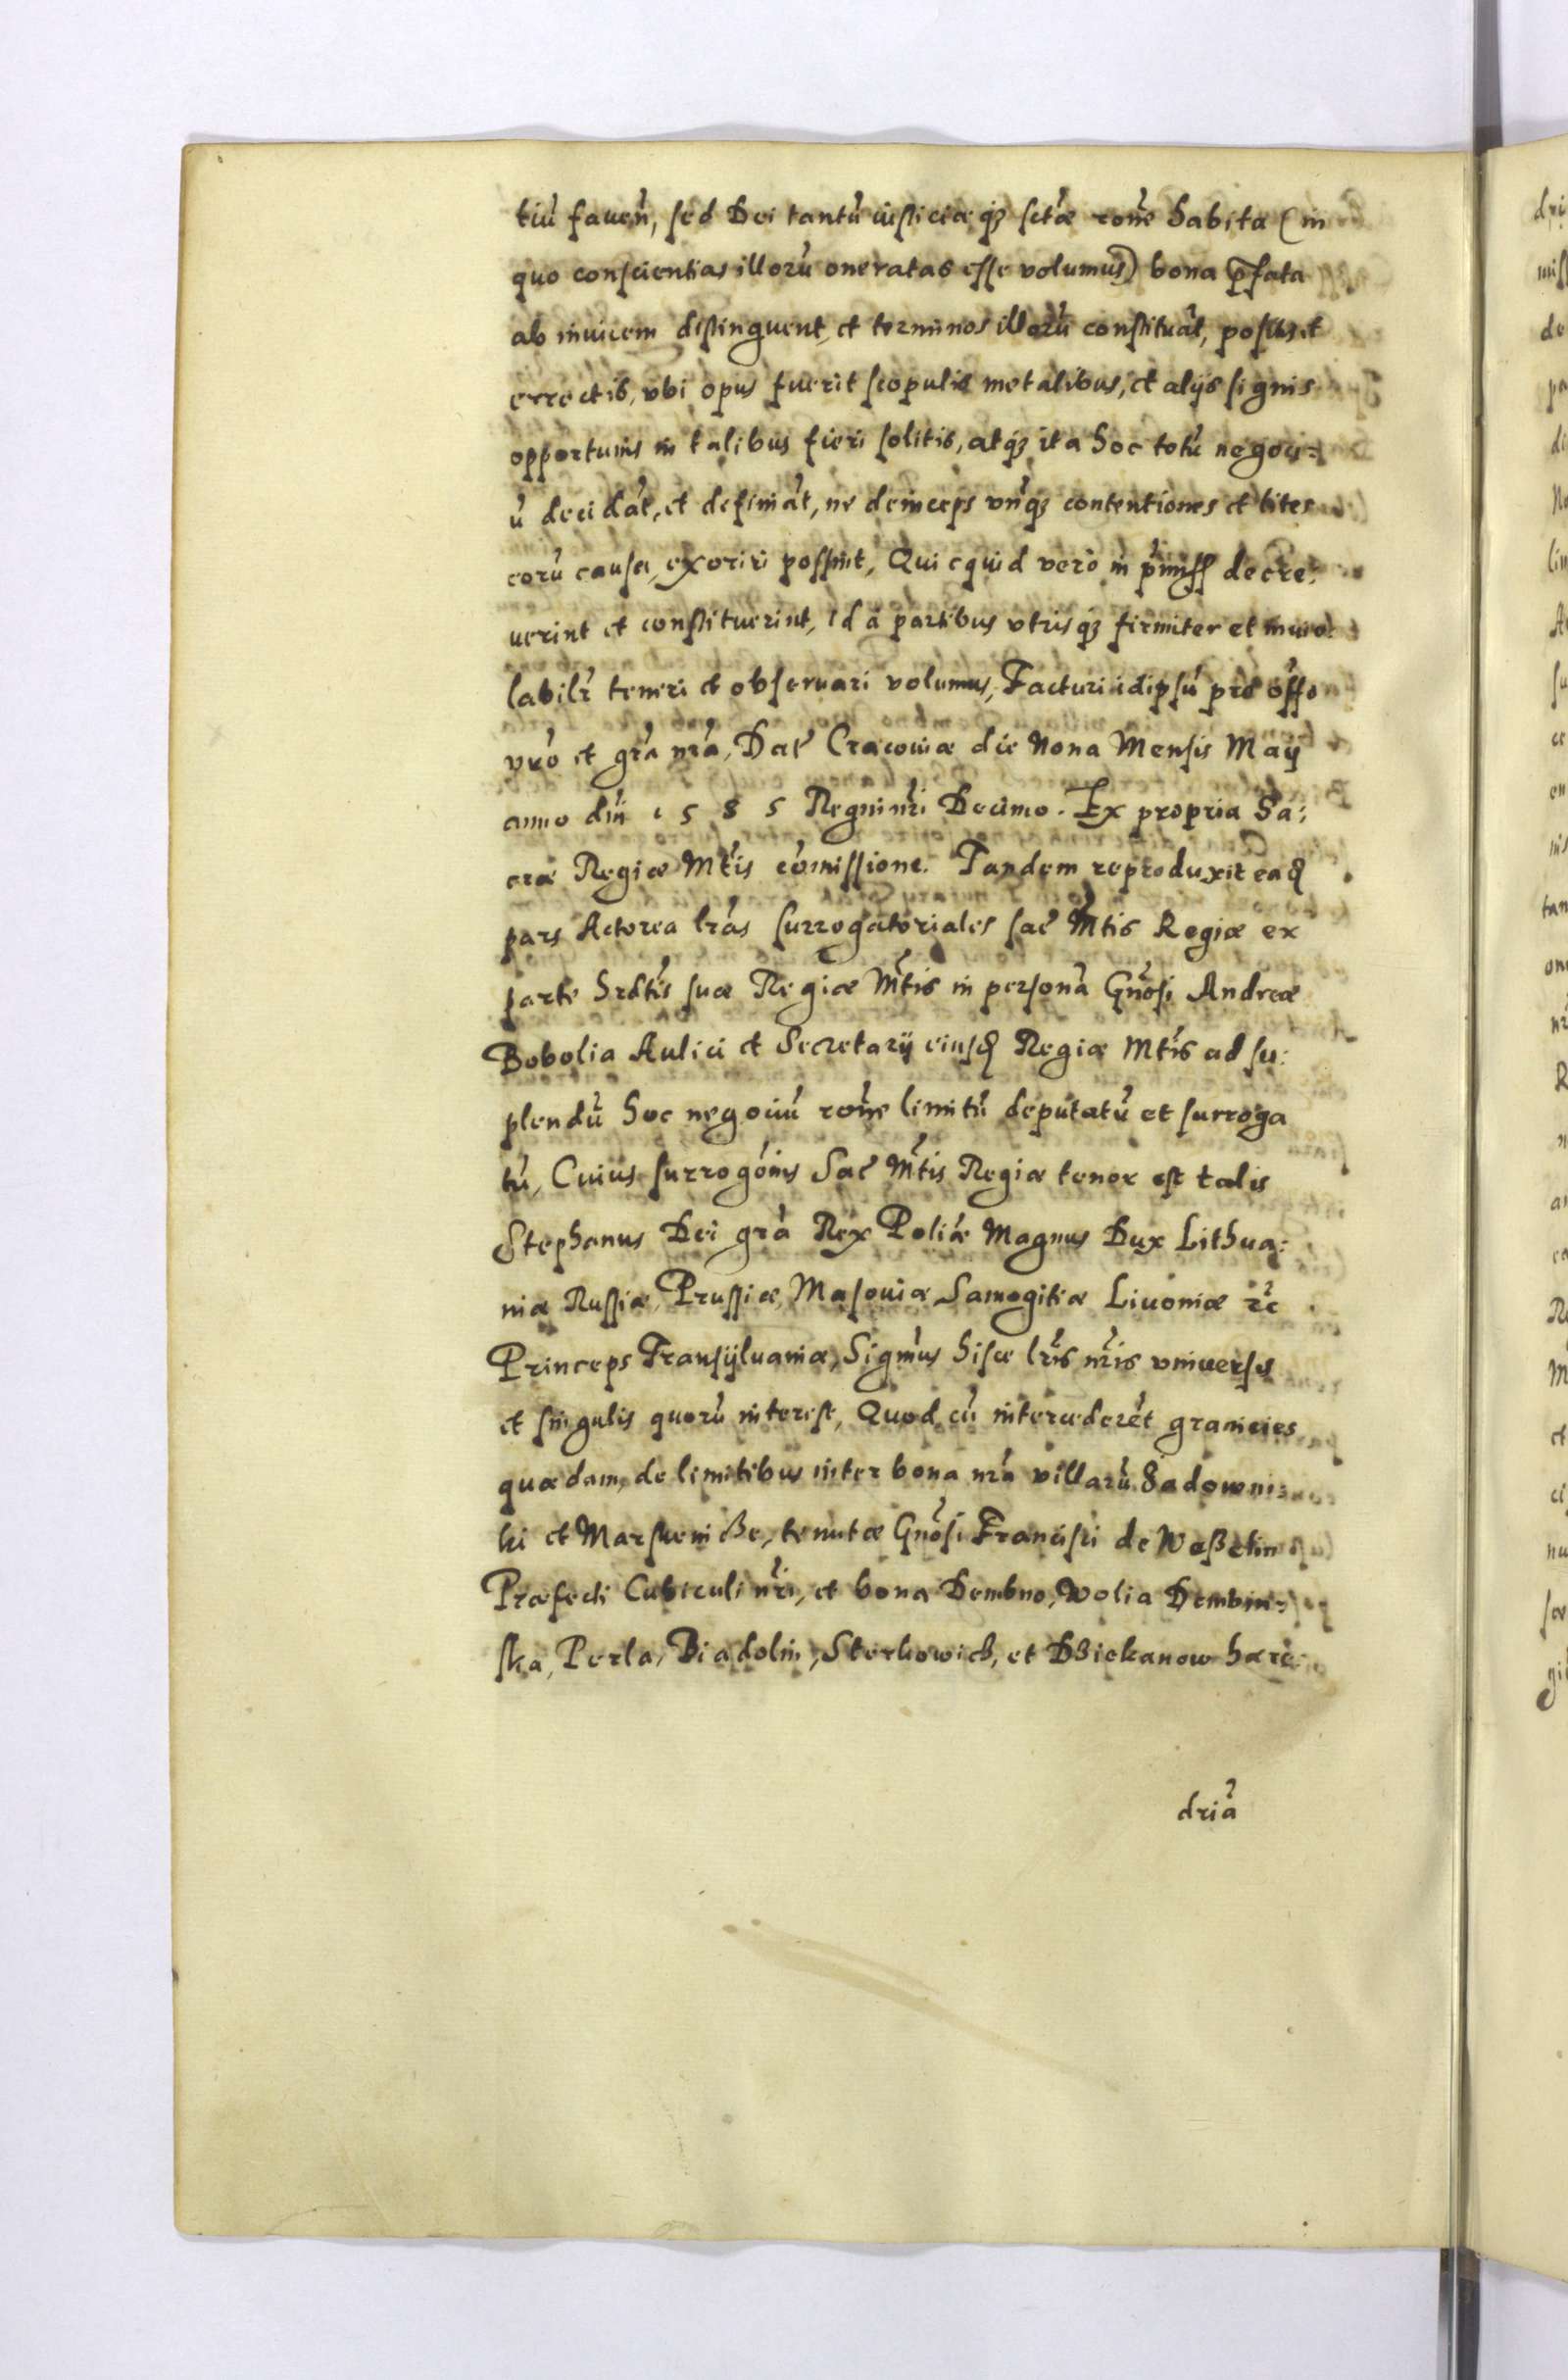 tiu͂ faven͂, sed Dei tantu͂ iusticiæ q̃ʒ sct͂æ ro͂ne habita (in
quo conscientias illoru͂ oneratas esse volumus) bona p̱fata
ab invicem distinguent, et terminos illoru͂ constitua͂t, positis et
errectis, vbi opus fuerit scopulis metalibus, et alijs signis
opportunis in talibus fieri solitis, atq̃ʒ ita hoc totu͂ negoci=
u͂ decida͂t, et definia͂t, ne deinceps vn͂q̃ʒ contentiones et lites
eoru͂ causa, exoriri possint, Quicquid vero in p͂miss decre:
uerint et constituerint, id a partibus vtrisq̃ʒ firmiter et inuio:
labilr͂ teneri et obseruari volumus, Facturi idipsu͂ pro off͂o
vr͂o et gr͂a nr͂a, Dat͂ Cracouiæ die Nona Mensis Maij
anno dn͂i 1585 Regni nr͂i Decimo. Ex propria Sa:
cræ Regiæ Mt͂is com͂issione. Tandem reproduxit ead
pars Actorea lr͂as surrogatoriales sac͂ Mt͂is Regiæ ex
parte hrdt͂is suæ Regiæ Mt͂is in persona͂ Gn͂osi Andreæ
Bobolia Aulici et Secretarij eiusd Regiæ Mt͂is ad su:
plendu͂ hoc negociu͂ ro͂ne limitu͂ deputatu͂ et surroga
tu͂, Cuius surrogo͂nis Sac͂ Mt͂is Regiæ tenor est talis
Stephanus Dei gr͂a Rex Poli͂æ Magnus Dux Lithua:
niæ Russiæ, Prussiæ, Masouiæ Samogitiæ Liuoniæ ꝛc͂
Princeps Transijluaniæ, Sigm͂us hisce lr͂is nr͂is vniuersis
et singulis quoru͂ interest, Quod cu͂ intercedere͂t granicies
quædam, de limitibus inter bona nr͂a villaru͂ Sadowni=
ki et Marskeniße, tenutæ Gn͂osi Francisci de Weßelin
Præfecti Cubiculi nr͂i, et bona Dembno, Wolia Dembin=
ska, Perla, Biadolin, Sterkowicȝ, et Dȝiekanow hære:
dria͂